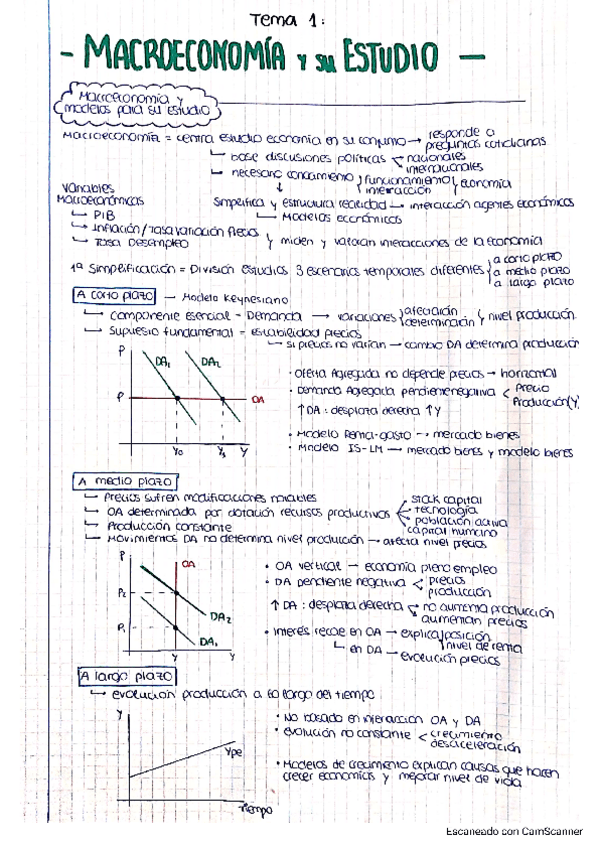 Tema 1:
- MACROECONOMÍA Y SU ESTUDIO -
Macroeconomía y
modelos para su estudio
Macroeconomía = centra estudio economía en su conjunto → responde a
preguntas cotidianas
base discusiones políticas nacionales
internacionales
necesario conocimiento funcionamiento economía
interacción
Variables
Macroeconómicas
simplifica y estructura realidad → interacción agentes económicos
Modelos económicos
PIB
Inflación/Tasa variación precios
Tasa Desempleo
y miden y valoran interacciones de la economía
1ª Simplificación = División estudios 3 escenarios temporales diferentes a corto plazo
a medio plazo
a largo plazo
A corto plazo - Modelo Keynesiano
componente esencial - Demanda → variaciones afectarán nivel producción
determinarán
Supuesto fundamental = estabilidad precios
si precios no varían → cambio DA determina producción
P
DA1
DA2
P
OA
Y0
Y1
Y
• Oferta Agregada no depende precios → horizontal
• Demanda Agregada pendiente negativa < Precio
Producción(Y)
↑DA: desplaza derecha ↑Y
• Modelo Renta-gasto → mercado bienes
• Modelo IS-LM → mercado bienes y modelo bienes
A medio plazo
Precios sufren modificaciones notables
OA determinada por dotación recursos productivos
stock capital
tecnología
población activa
capital humano
Producción constante
Movimientos DA no determina nivel producción → afecta nivel precios
P
OA
P2
P1
DA2
DA1
Y
Y
• OA vertical - economía pleno empleo
• DA pendiente negativa < precios
producción
↑DA: desplaza derecha no aumenta producción
aumentan precios
• Interés recae en OA → explica posición
nivel de renta
en DA → evolución precios
A largo plazo
evolución producción a lo largo del tiempo
Y
Ype
Tiempo
• No basado en interacción OA y DA
• evolución no constante < crecimiento
desaceleración
• Modelos de crecimiento explican causas que hacen
crecer economías y mejorar nivel de vida
Escaneado con CamScanner